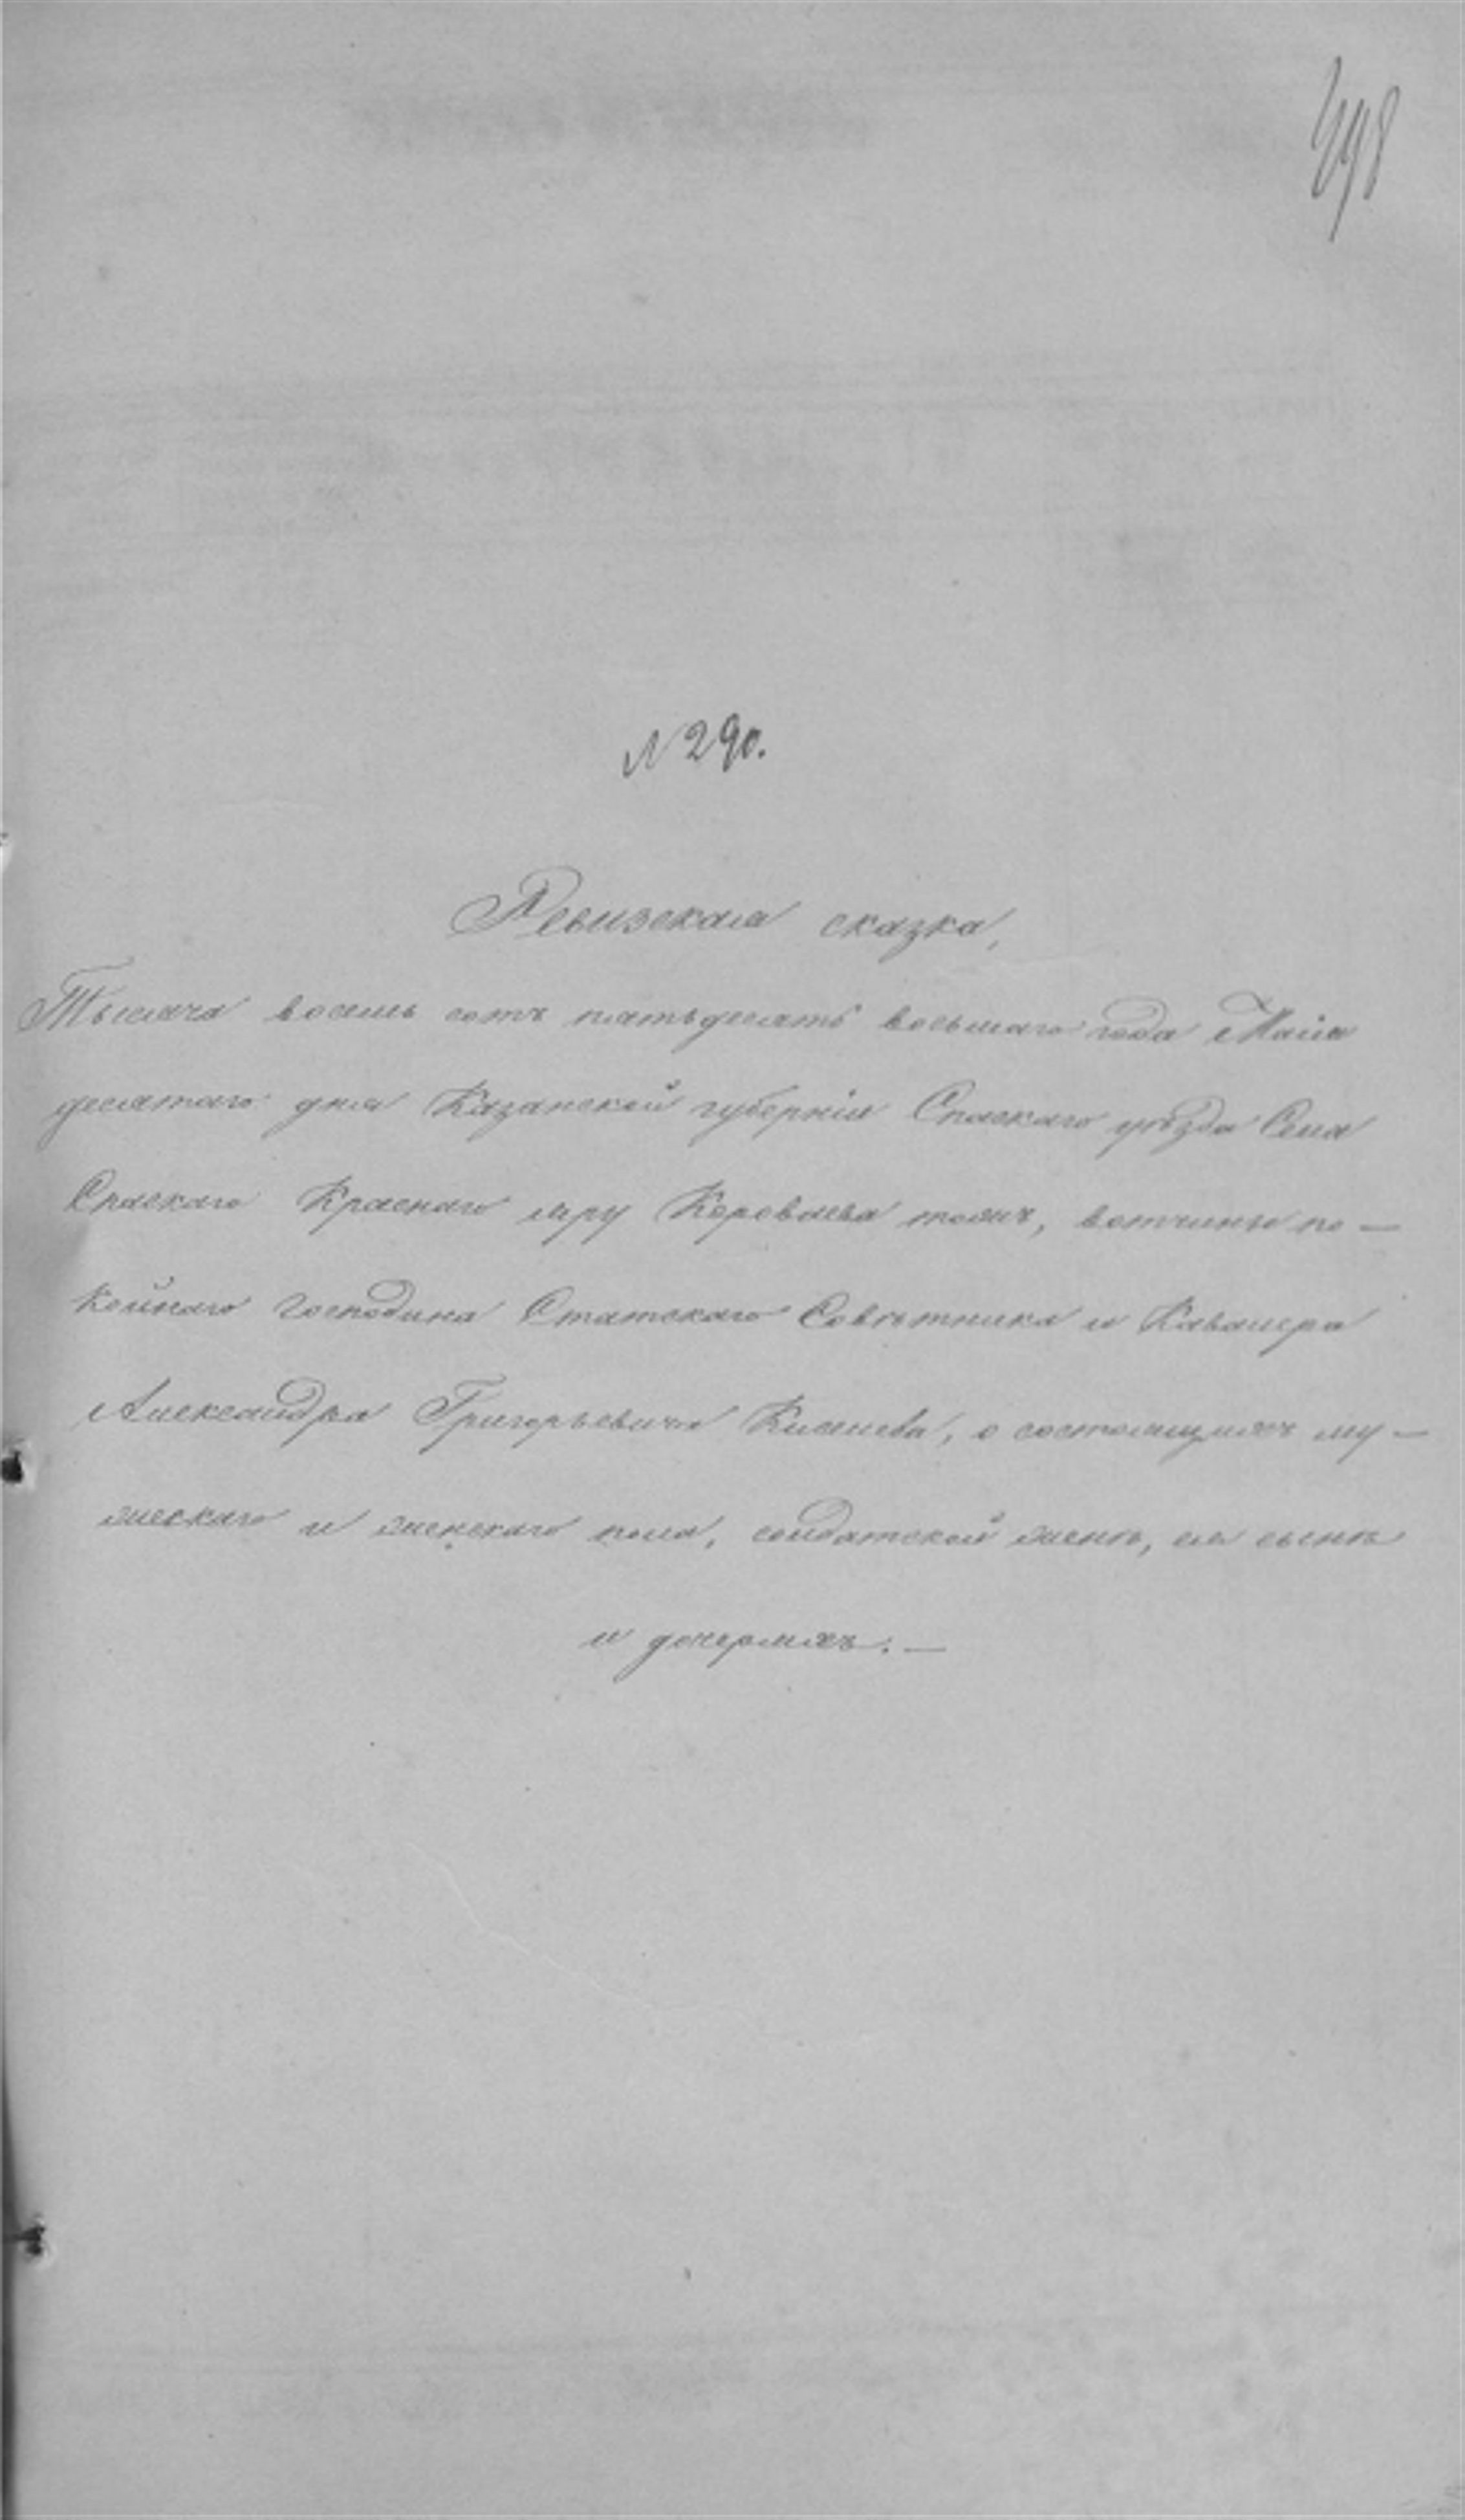 498
N 290.
Ревизская сказка,
Тысяча восемь сотъ пятьдесятъ восьмаго года Маія
десятаго дня Казанской губерніи Спаскаго уѣзда Села
Спаскаго Краснаго яру Короваева тожъ, вотчины по –
койнаго Господина Статскаго Совѣтника и Кавалера
Александра Григорьевича Киселева, о состоящихъ му –
жескаго и женскаго пола, солдатской женѣ, ея сынѣ
и дочеряхъ. –